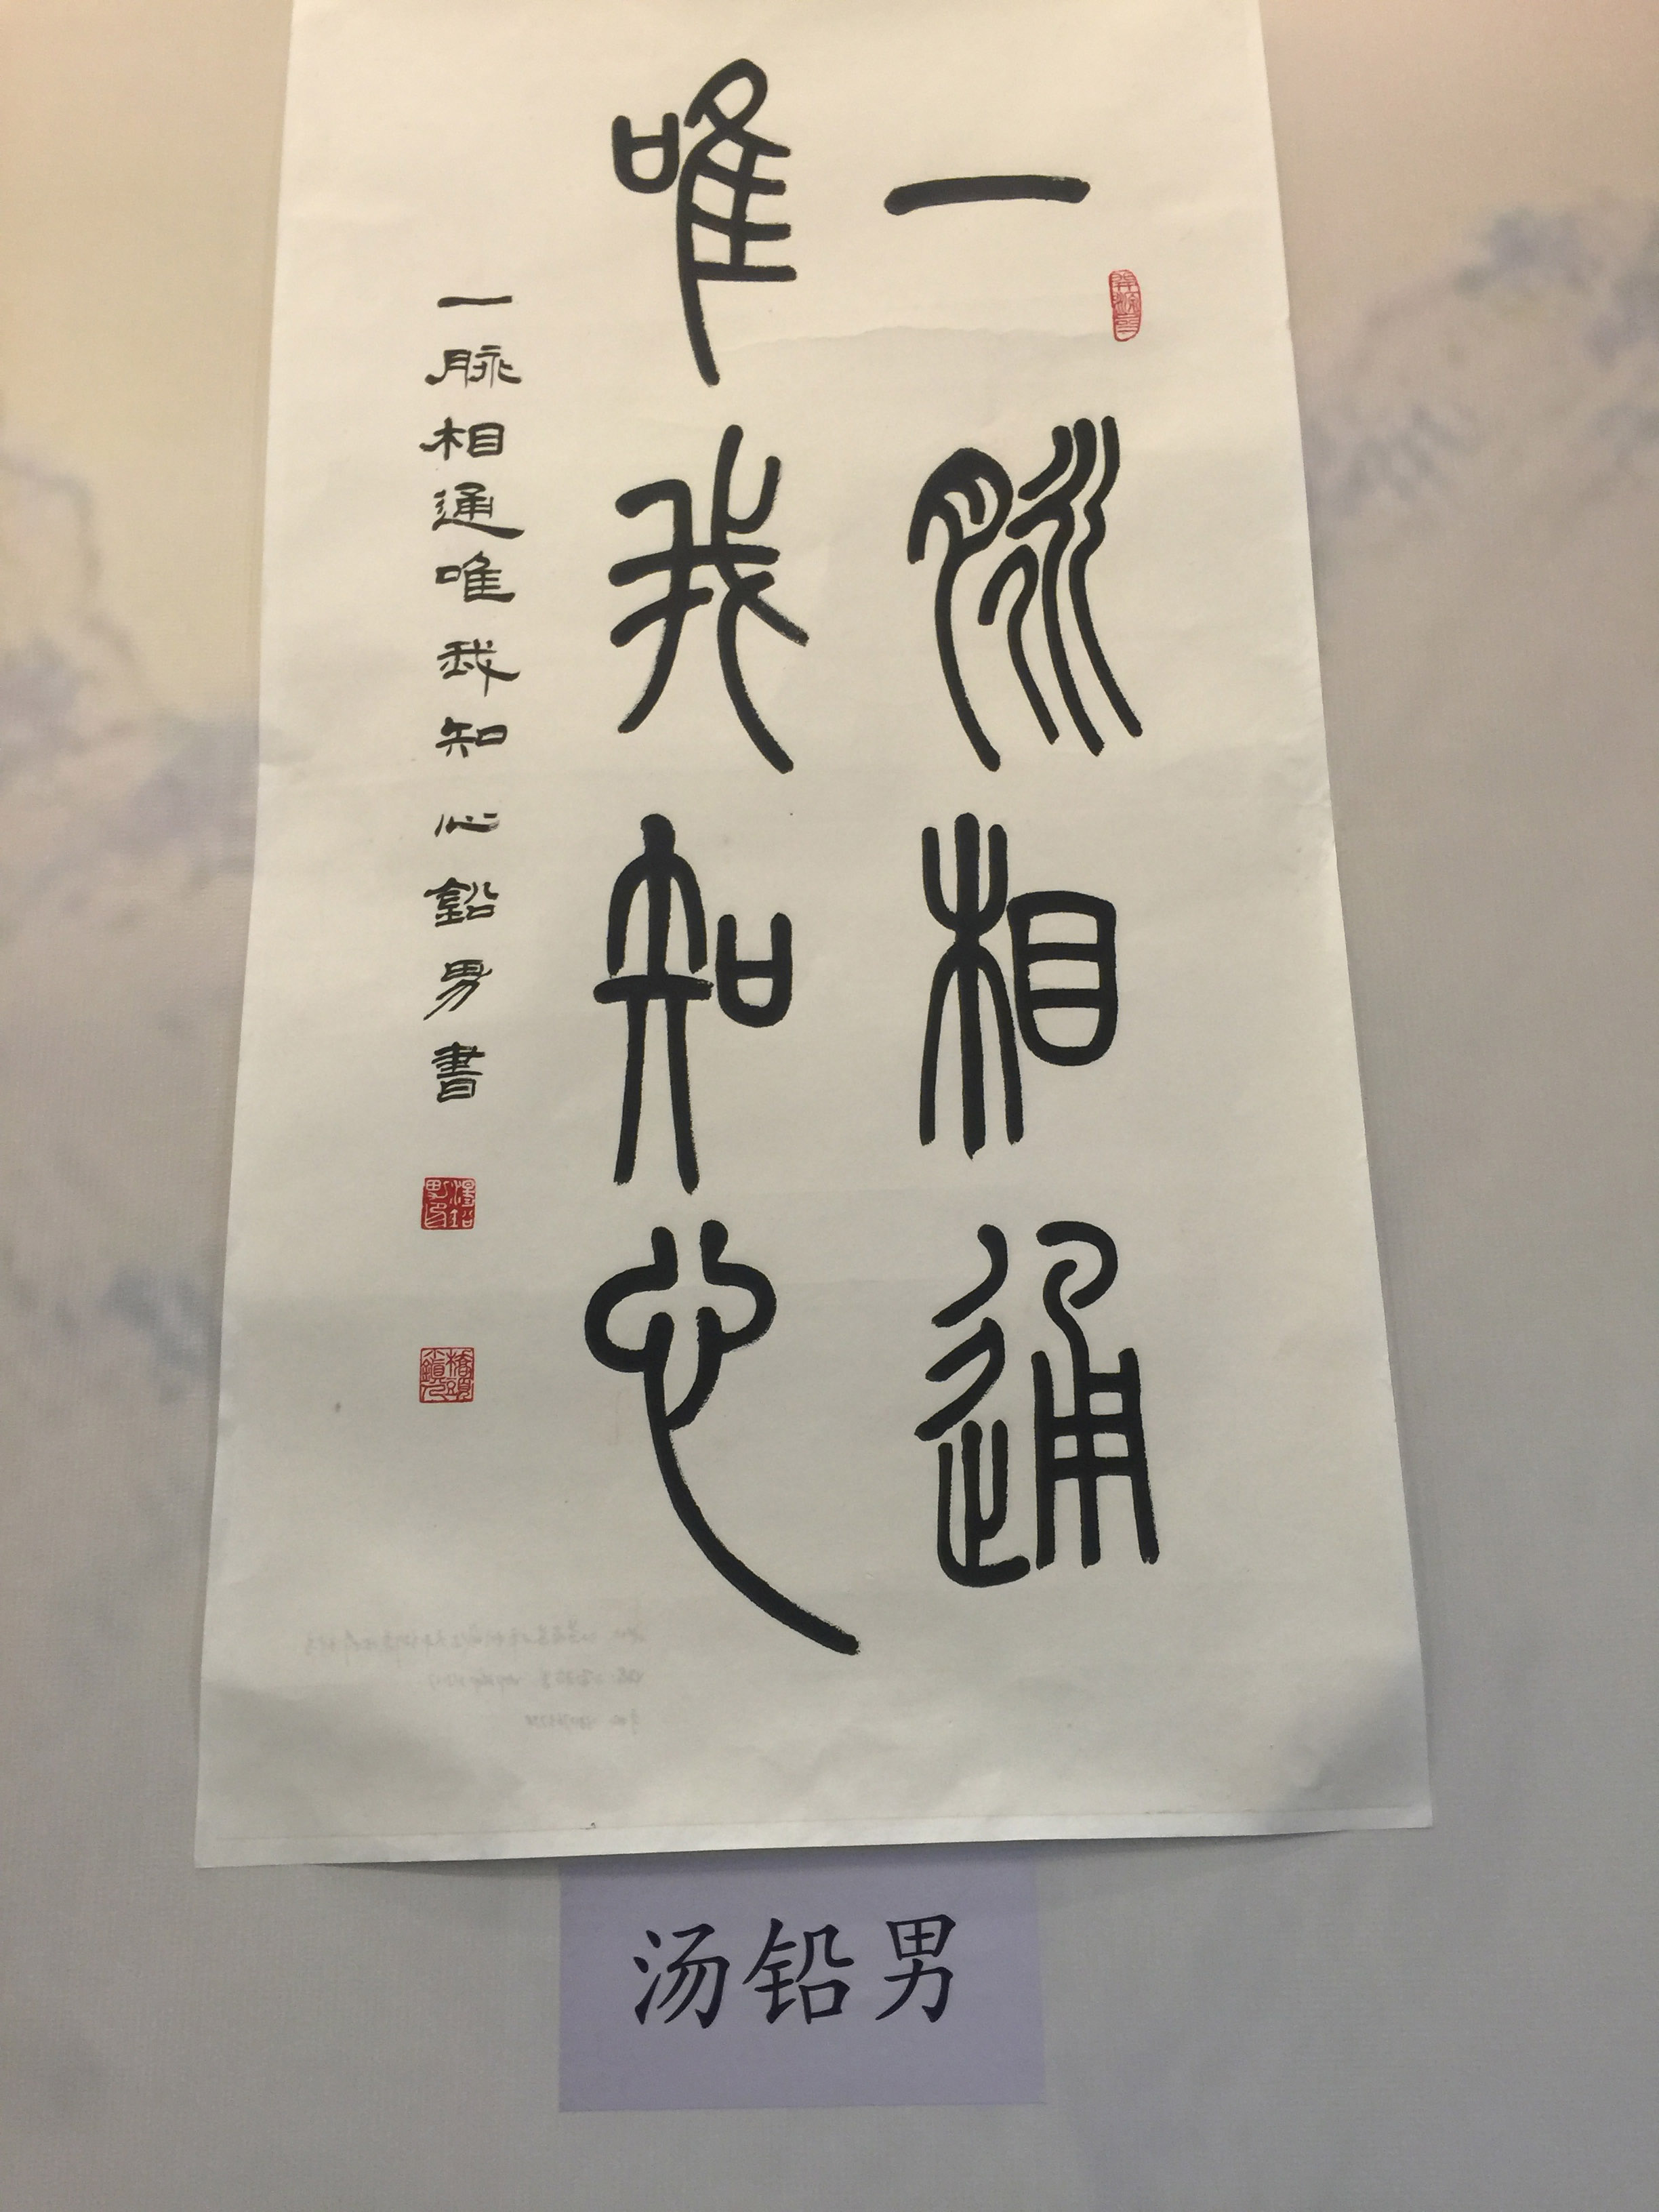 一脉相通
唯我知心
一脉相通唯我知心鉛男書
汤铅男